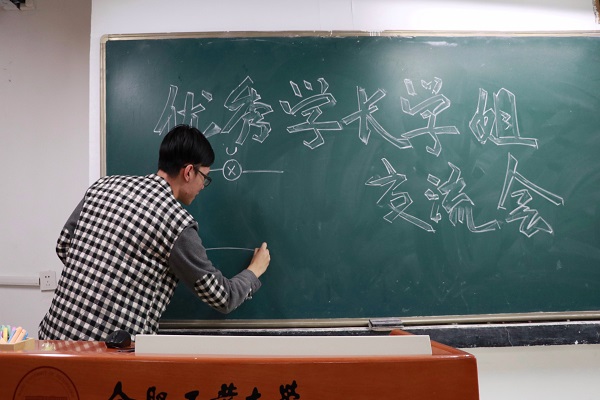 优秀学长学姐
交流会
合肥工业大学